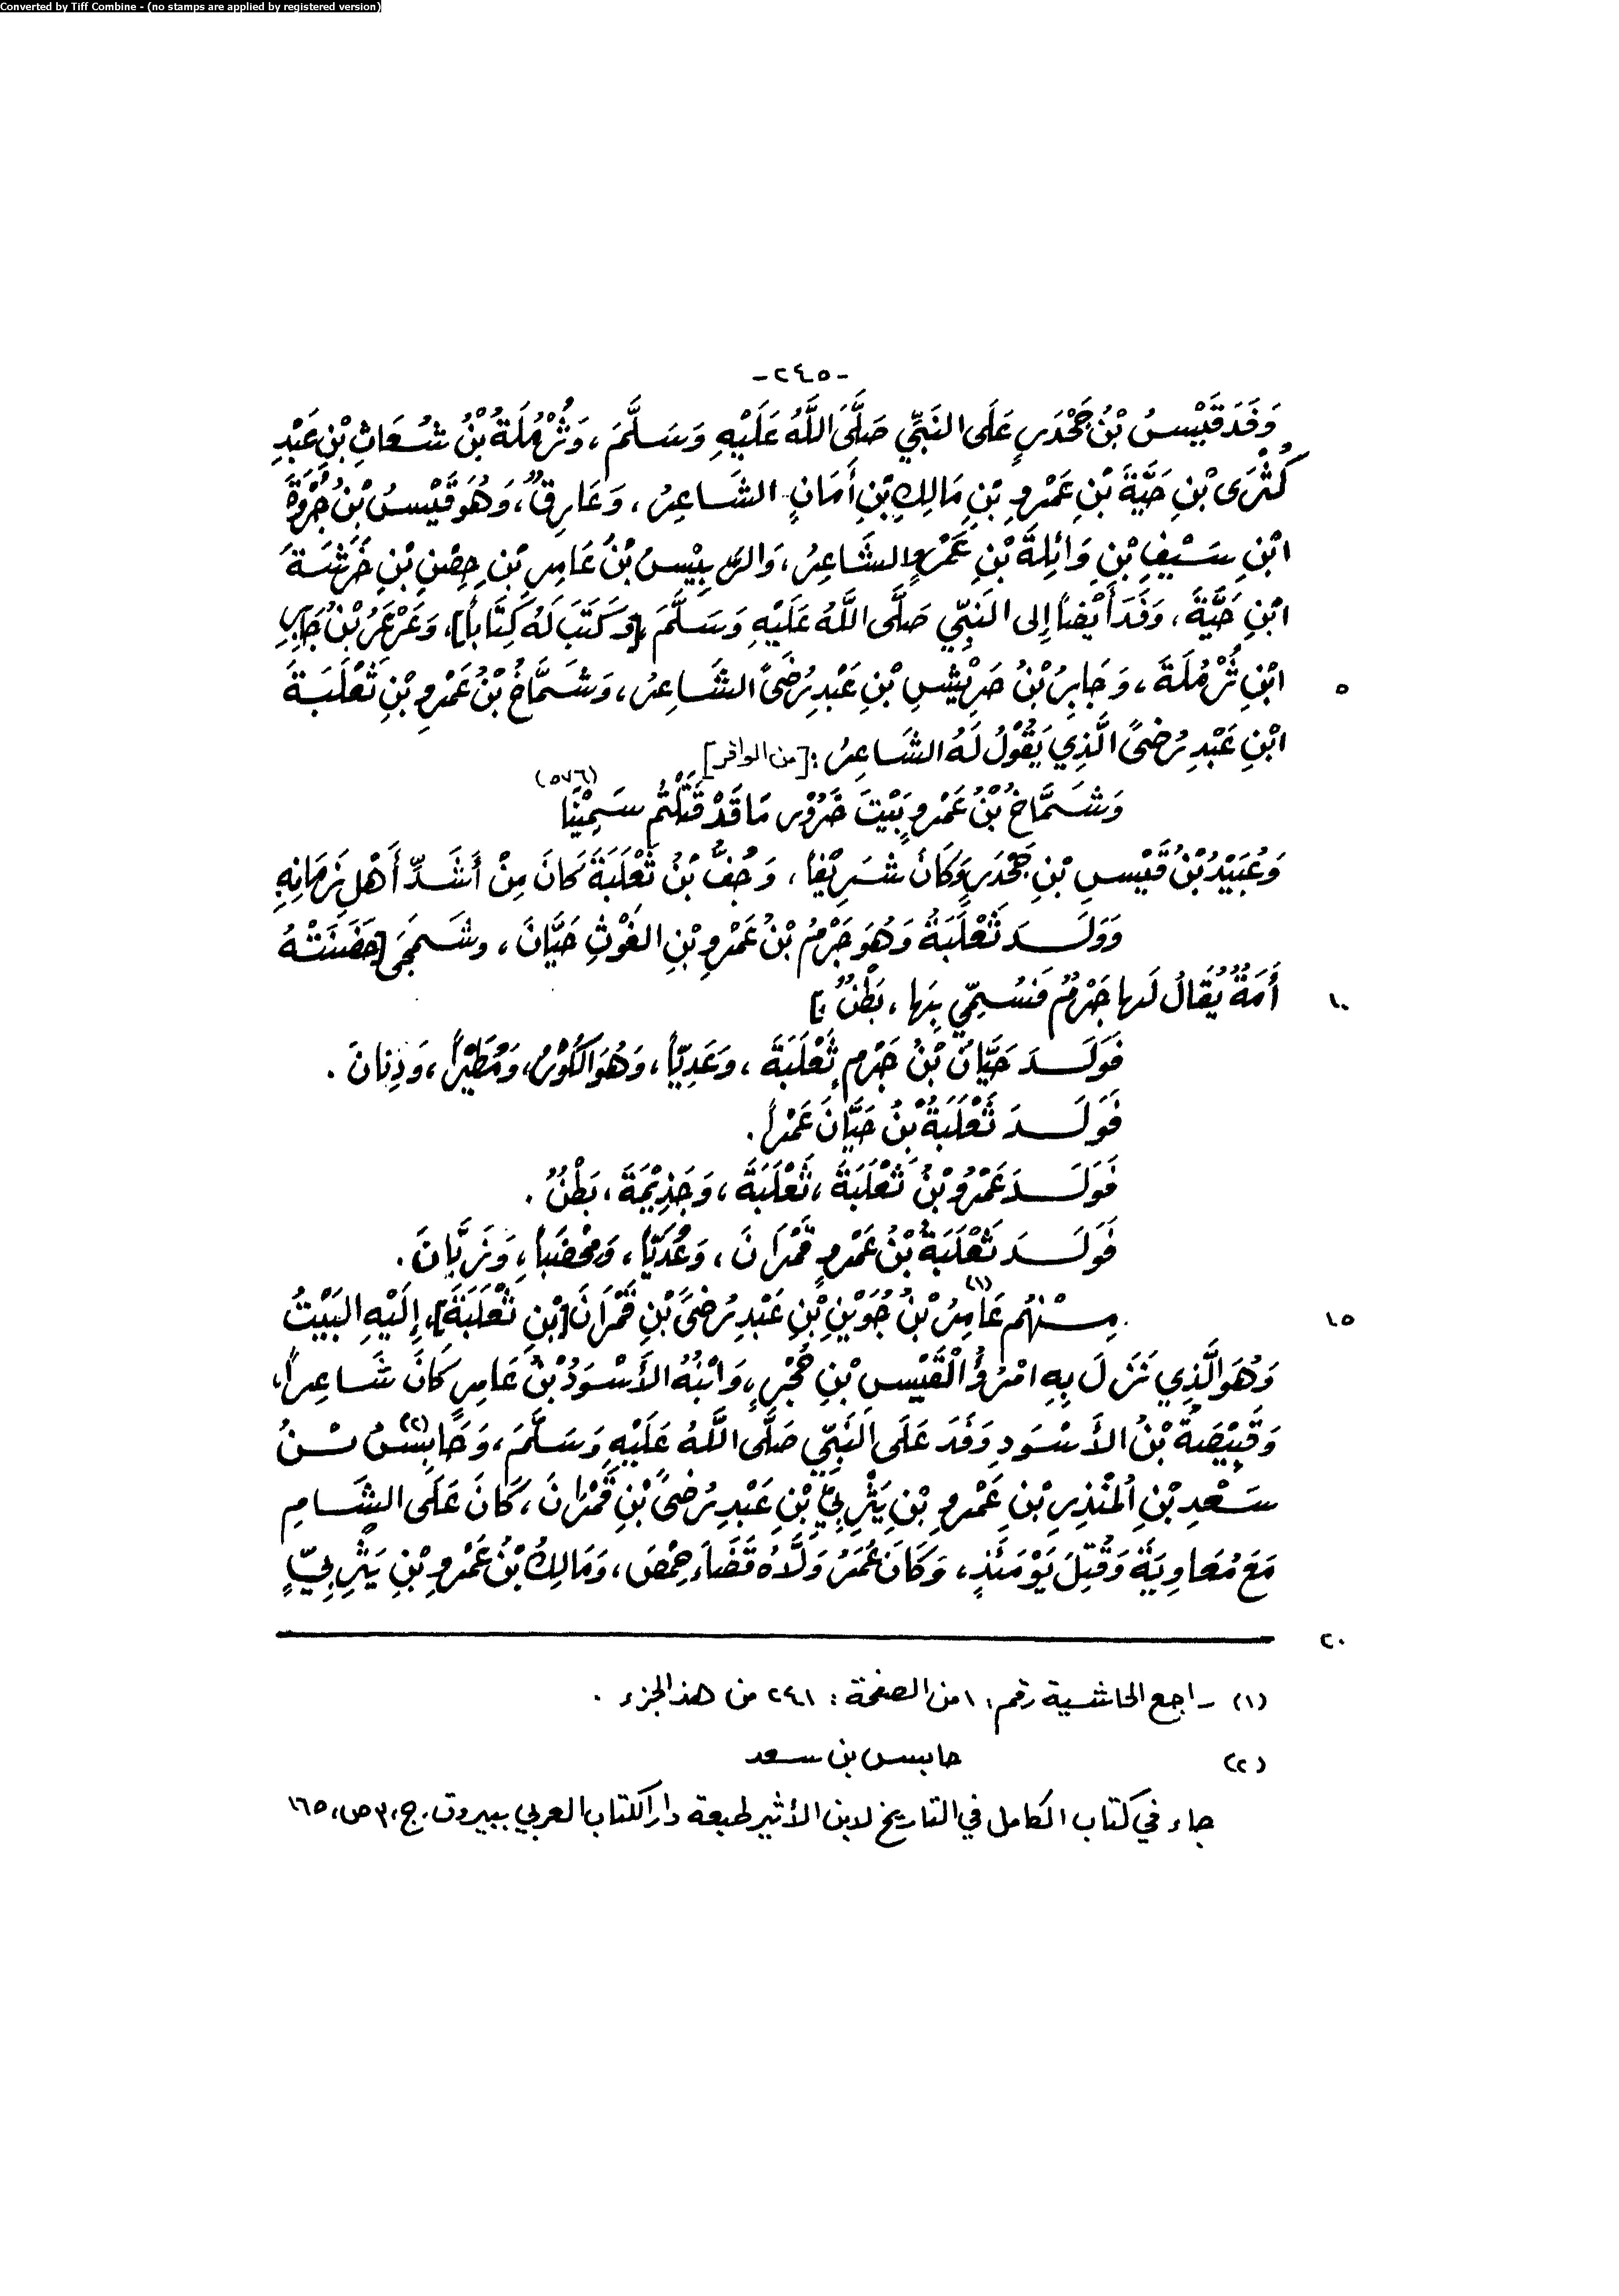 Converted by Tiff Combine - (no stamps are applied by registered version)
-٢٤٥-
وَفَدَ قَيْسُ بْنُ جَحْدَرٍ عَلَى النَّبِيِّ صَلَّى اللَّهُ عَلَيْهِ وَسَلَّمَ، وَثُرْمُلَةُ بْنُ شُعَاثِ بْنِ عَبْدِ
كُثْرَى بْنِ حَيَّةَ بْنِ عَمْرِو بْنِ مَالِكِ بْنِ أَمَانٍ الشَّاعِرُ، وَعَارِقٌ، وَهُوَ قَيْسُ بْنُ جُرْوَةَ
ابْنِ سَيْفِ بْنِ وَائِلَةَ بْنِ عَمْرٍو الشَّاعِرُ، وَالرِّبِيْسُ بْنُ عَامِرِ بْنِ حِصْنِ بْنِ خَرَشَةَ
ابْنِ حَيَّةَ، وَفَدَ أَيْضاً إِلى النَّبِيِّ صَلَّى اللَّهُ عَلَيْهِ وَسَلَّمَ [وَكَتَبَ لَهُ كِتَاباً]، وَعَرْعَرُ بْنُ جَابِرِ
ابْنِ ثُرْمُلَةَ، وَجَابِرُ بْنُ حَرِيْشِ بْنِ عَبْدِ رُضَىً الشَّاعِرُ، وَشَمَّاخُ بْنُ عَمْرِو بْنِ ثَعْلَبَةَ
٥
ابْنِ عَبْدِ رُضىً الَّذِي يَقُوْلُ لَهُ الشَّاعِرُ: [من الوافر]
وَشَمَّاخُ بْنُ عَمْرٍو بَيْتَ حَزُوْرٍ مَا قَدْ قَتَلْتُم سَمِيْنَا (٥٧٦)
وَعُبَيْدُ بْنُ قَيْسِ بْنِ جَحْدَرٍ وَكَانَ شَرِيْفاً، وَجُفُّ بْنُ ثَعْلَبَةَ كَانَ مِنْ أَشَدِّ أَهْلِ زَمَانِهِ
وَوَلَدَ ثَعْلَبَةُ وَهُوَ جَرْمُ بْنُ عَمْرِو بْنِ الغَوْثِ حَيَّانَ، وشَمَجَى [حَضَنَتْهُ
أَمَةٌ يُقَالُ لَها جَرْمٌ فَسُمِّيَ بِهَا، بَطْنٌ]
١٠
فَوَلَدَ حَيَّانُ بْنُ جَرْمٍ ثَعْلَبَةَ، وَعَدِيّاً، وَهُوَ الكُوْرُ، وَمُطَيْراً، وَذِنانَ.
فَوَلَدَ ثَعْلَبَةُ بْنُ حَيَّانَ عَمْراً.
فَوَلَدَ عَمْرُو بْنُ ثَعْلَبَةَ، ثَعْلَبَةَ، وَجَذِيْمَةَ، بَطْنٌ.
فَوَلَدَ ثَعْلَبَةُ بْنُ عَمْرٍو قَمْرَانَ، وَعُدَيّاً، وَمِحْضَباً، وَزَبَّانَ.
مِنْهُم عَامِرُ (١) بْنُ جُوَيْنِ بْنِ عَبْدِ رُضىً بْنِ قَمْرَانَ [بْنِ ثَعْلَبَةَ]، إِلَيْهِ البَيْتُ
١٥
وَهُوَ الَّذِي نَزَلَ بِهِ امْرُؤُ القَيْسِ بْنِ حُجْرٍ، وَابْنُهُ الأَسْوَدُ بْنُ عَامِرٍ كَانَ شَاعِراً،
وَقَبِيْصَةُ بْنُ الأَسْوَدِ وَفَدَ عَلَى النَّبِيِّ صَلَّى اللَّهُ عَلَيْهِ وَسَلَّمَ، وَحَابِسُ (٢) بْنُ
سَعْدِ بْنِ المُنْذِرِ بْنِ عَمْرِو بْنِ يَثْرِبِيِّ بْنِ عَبْدِ رُضىً بْنِ قَمْرَانَ، كَانَ عَلَى الشَّامِ
مَعَ مُعَاوِيَةَ وَقُتِلَ يَوْمَئِذٍ، وَكَانَ عُمَرُ وَلَّاهُ قَضَاءَ حِمْصَ، وَمَالِكُ بْنُ عَمْرِو بْنِ يَثْرِبِيٍّ
٢٠
(١) راجع الحاشية رقم: ١ من الصفحة: ٢٤١ من هذ الجزء.
(٢) حابس بن سعد
جاء في كتاب الكامل في التاريخ لابن الأثير طبعة دار الكتاب العربي ببيروت. ج، ٣ ص، ١٦٥